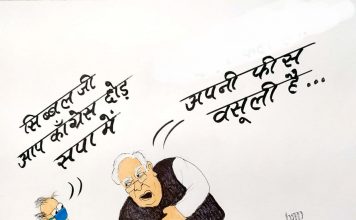 सिब्बल जी
आप काँग्रेस छोड़
सपा में
अपनी फीस
वसूली है...